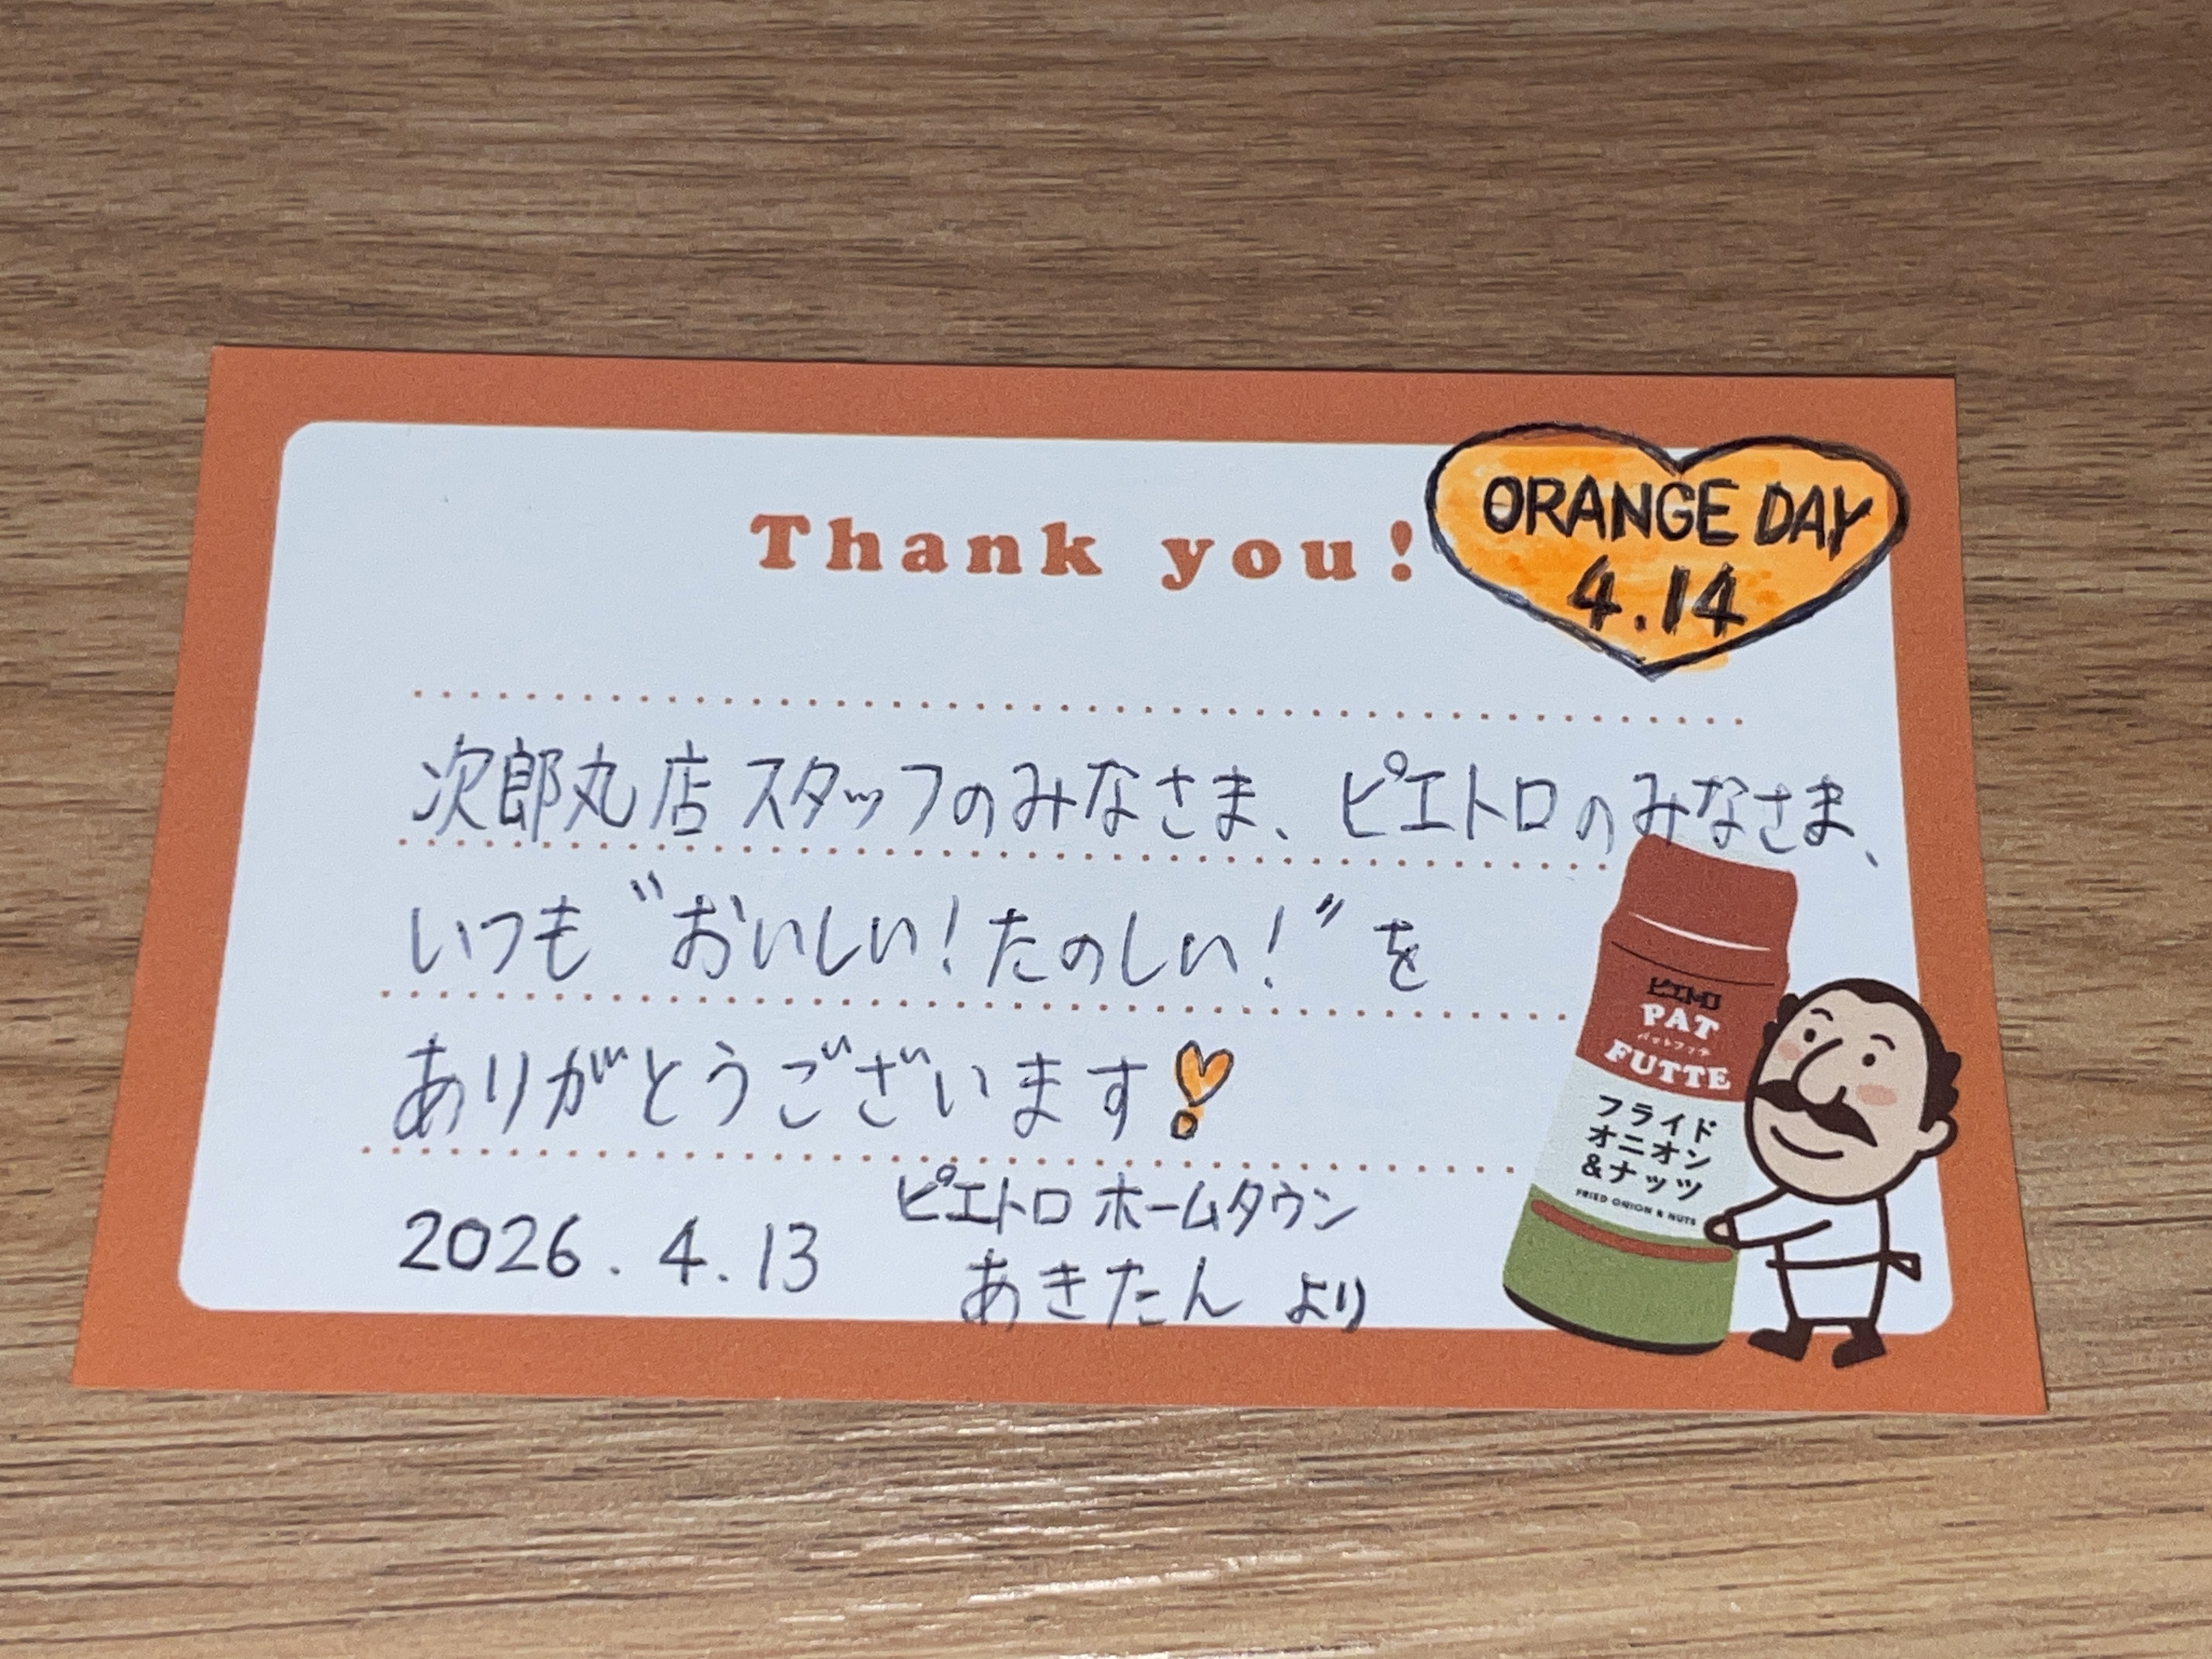 Thank you!
ORANGE DAY
4.14
次郎丸店 スタッフのみなさま、ピエトロのみなさま、
いつも〝おいしい！たのしい！〟を
ありがとうございます
2026.4.13
ピエトロ ホームタウン
あきたん より
ピエトロ
PAT
パットフッテ
FUTTE
フライド
オニオン
&ナッツ
FRIED ONION & NUTS